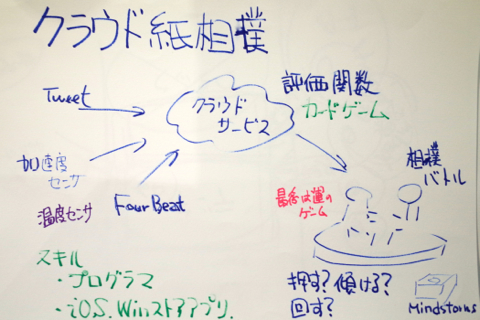 クラウド紙相撲
Tweet
クラウド
サービス
評価関数
カードゲーム
加速度
センサ
温度センサ
Four Beat
相撲
バトル
最後は運の
ゲーム
スキル
・プログラマ
・iOS. Winストアアプリ.
押す?傾ける?
回す?
Mindstorms